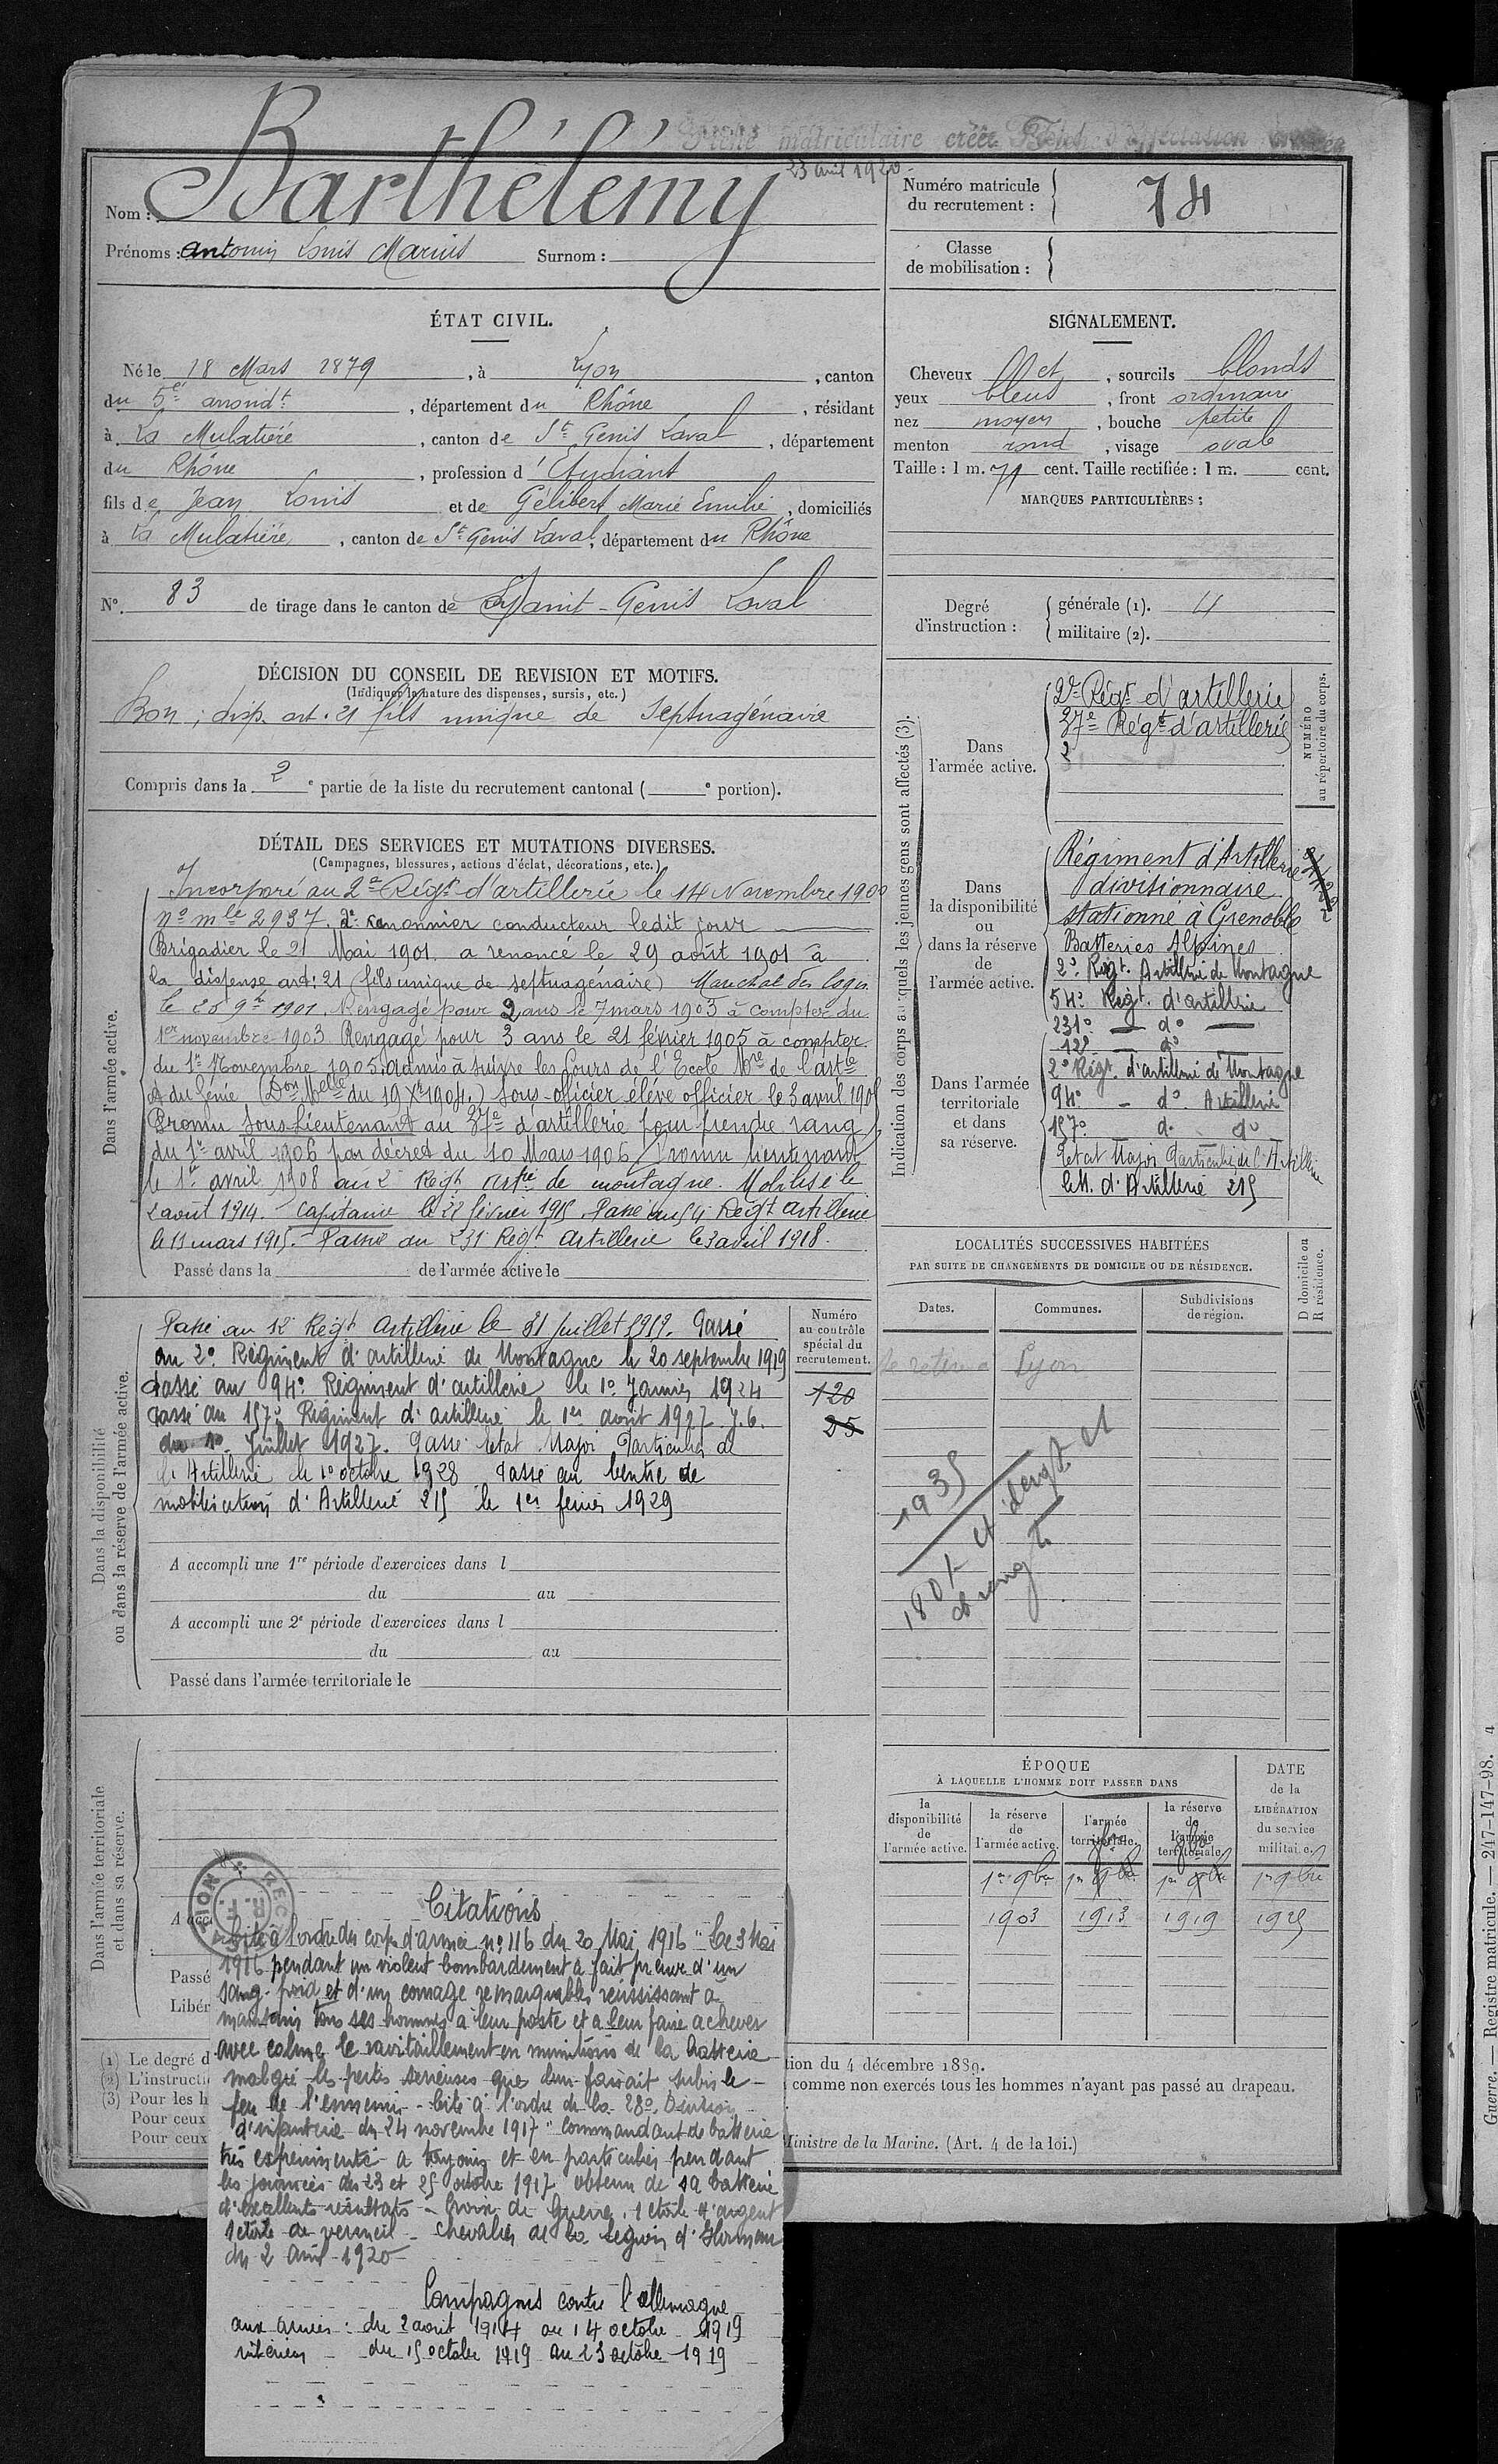 Fiche matriculaire créée
23 avril 1920
Nom : Barthélémy
Prénoms : Antonin Louis Marius Surnom :
Numéro matricule du recrutement : 74
Classe de mobilisation :
ÉTAT CIVIL.
Né le 18 Mars 1879, à Lyon, canton
du 5e arrondt, département du Rhône, résidant
à La Mulatière, canton de St Genis Laval, département
du Rhône, profession d'Etudiant
fils de Jean Louis et de Gélibert Marie Emilie, domiciliés
à La Mulatière, canton de St Genis Laval, département du Rhône
No. 83 de tirage dans le canton de Saint-Genis Laval
SIGNALEMENT.
Cheveux et, sourcils blonds
yeux bleus, front ordinaire
nez moyen, bouche petite
menton rond, visage ovale
Taille : 1 m. 71 cent. Taille rectifiée : 1 m. cent.
MARQUES PARTICULIÈRES :
Degré d'instruction : générale (1). 4
militaire (2).
DÉCISION DU CONSEIL DE REVISION ET MOTIFS.
(Indiquer la nature des dispenses, sursis, etc.)
Bon ; disp. art. 21 fils unique de septuagénaire
Compris dans la 2e partie de la liste du recrutement cantonal ( e portion).
DÉTAIL DES SERVICES ET MUTATIONS DIVERSES.
(Campagnes, blessures, actions d'éclat, décorations, etc.)
Dans l'armée active.
Incorporé au 2e Régt d'artillerie le 14 Novembre 1900
no mle 2937. 2e canonnier conducteur ledit jour
Brigadier le 21 Mai 1901. a renoncé le 29 août 1901 à
la dispense art: 21 (fils unique de septuagénaire) Maréchal des logis
le 26 9bre 1901. Rengagé pour 2 ans le 7 mars 1903 à compter du
1er novembre 1903 Rengagé pour 3 ans le 21 février 1905 à compter
du 1er Novembre 1905. admis à suivre les Cours de l'Ecole Mre de l'artie
et du Génie (Don Melle du 19 Xbre 1904.) Sous-officier élève officier le 3 avril 1905
Promu Sous-Lieutenant au 37e d'artillerie pour prendre rang
du 1er avril 1906 par décret du 10 Mars 1906. Promu lieutenant
le 1er avril 1908 au 2e Regt artie de montagne. Mobilisé le
2 août 1914. Capitaine le 22 février 1915. Passé au 54e Régt artillerie
le 13 mars 1915. Passé au 231e Régt artillerie le 3 avril 1918.
Passé dans la de l'armée active le
Dans la disponibilité ou dans la réserve de l'armée active.
Passé au 12e Régt artillerie le 31 juillet 1919. Passé
au 2e Régiment d'artillerie de Montagne le 20 septembre 1919
Passé au 94e Régiment d'artillerie le 1er Janvier 1924
Passé au 157e Régiment d'artillerie le 1er août 1927 J.O.
du 10 Juillet 1927. Passé Etat Major Particulier de
l'Artillerie le 1er octobre 1928 Passé au Centre de
mobilisation d'Artillerie 215 le 1er février 1929
Numéro au contrôle spécial du recrutement.
120
25
A accompli une 1re période d'exercices dans l
du au
A accompli une 2e période d'exercices dans l
du au
Passé dans l'armée territoriale le
Dans l'armée territoriale et dans sa réserve.
A acc
Passé
Libér
Indication des corps auxquels les jeunes gens sont affectés (3).
NUMÉRO au répertoire du corps.
Dans l'armée active.
2e Régt d'artillerie
37e Régt d'artillerie
2
Dans la disponibilité ou dans la réserve de l'armée active.
Régiment d'Artillerie
divisionnaire
stationné à Grenoble
Batteries Alpines
2e Régt. Artillerie de Montagne
54e Régt. d'artillerie
231e do
12e do
Dans l'armée territoriale et dans sa réserve.
2e Régt. d'artillerie de Montagne
94e - do. Artillerie
157e do do
Etat Major Particulier de l'Artillerie
C.M. d'Artillerie 215
LOCALITÉS SUCCESSIVES HABITÉES
PAR SUITE DE CHANGEMENTS DE DOMICILE OU DE RÉSIDENCE.
Dates. Communes. Subdivisions de région. D domicile ou R résidence.
se retire à Lyon
1935
ÉPOQUE
À LAQUELLE L'HOMME DOIT PASSER DANS
la disponibilité de l'armée active.
la réserve de l'armée active.
l'armée territoriale.
la réserve de l'armée territoriale.
DATE de la LIBÉRATION du service militaire.
1er 9bre 1er 9bre 1er 9bre 1er 9bre
1903 1913 1919 1925
Citations
Cité à l'ordre du corps d'armée no 116 du 20 Mai 1916 "Le 3 Mai
1916 pendant un violent bombardement a fait preuve d'un
sang-froid et d'un courage remarquables réussissant à
maintenir tous ses hommes à leur poste et à leur faire achever
avec calme le ravitaillement en munitions de la batterie
malgré les pertes sérieuses que leur faisait subir le
feu de l'ennemi - Cité à l'ordre de la 28e Division
d'infanterie du 24 novembre 1917 "Commandant de batterie
très expérimenté a toujours et en particulier pendant
les journées des 23 et 25 octobre 1917 obtenu de sa batterie
d'excellents résultats - Croix de Guerre. 1 étoile d'argent
1 étoile de vermeil - Chevalier de la Légion d'Honneur
du 2 Avril 1920
Campagnes contre l'Allemagne
aux armées : du 2 août 1914 au 14 octobre 1919
intérieur - du 15 octobre 1919 au 23 octobre 1919
(1) Le degré d
(2) L'instructi
(3) Pour les h
Pour ceux
Pour ceux
tion du 4 décembre 1889.
comme non exercés tous les hommes n'ayant pas passé au drapeau.
Ministre de la Marine. (Art. 4 de la loi.)
Guerre. — Registre matricule. — 247-147-98. 4